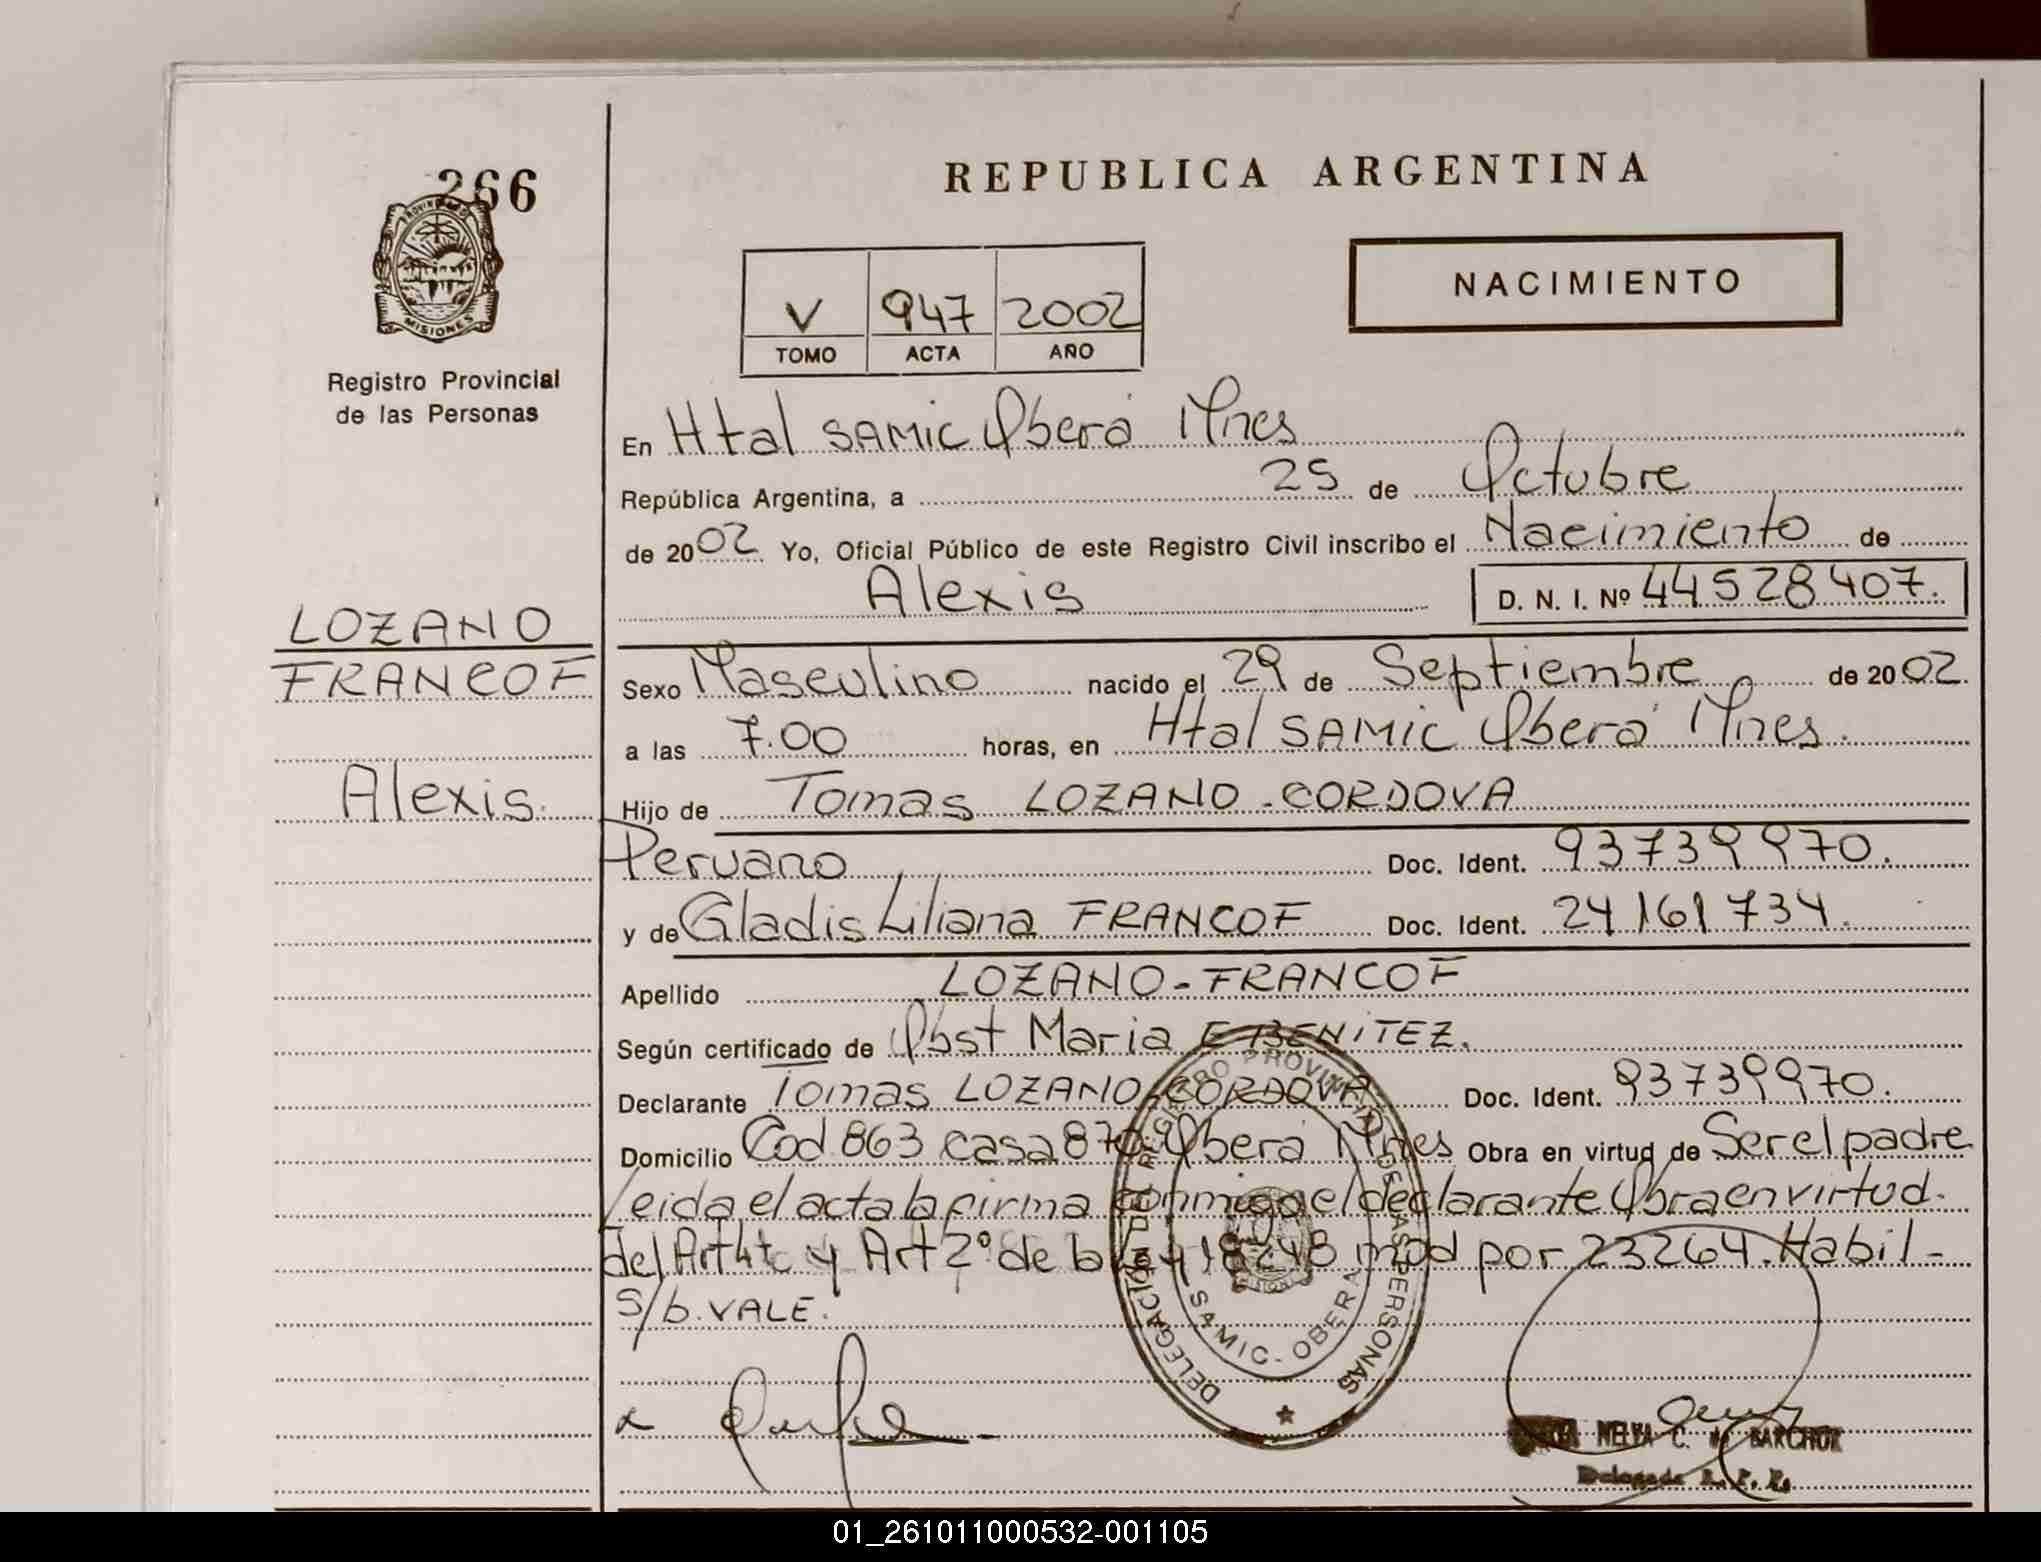 266
PROVINCIA D
MISIONES
Registro Provincial
de las Personas
REPUBLICA ARGENTINA
NACIMIENTO
V 947 2002
TOMO ACTA AÑO
En Htal SAMIC Oberá Mnes
República Argentina, a 25 de Octubre
de 2002 Yo, Oficial Público de este Registro Civil inscribo el Nacimiento de
Alexis D. N. I. Nº 44528407.
LOZANO
FRANCOF
Alexis.
Sexo Masculino nacido el 29 de Septiembre de 2002
a las 7.00 horas, en Htal SAMIC Oberá Mnes.
Hijo de Tomas LOZANO-CORDOVA
Peruano Doc. Ident. 93739970.
y de Gladis Liliana FRANCOF Doc. Ident. 24161734.
Apellido LOZANO-FRANCOF
Según certificado de Obst Maria E BENITEZ.
Declarante Tomas LOZANO CORDOVA Doc. Ident. 93739970.
Domicilio Cod 863 casa 870 Oberá Mnes Obra en virtud de Ser el padre
Leida el acta la firma conmigo el declarante Obra en virtud
del Art 4t y Art 2º de la ley 18248 mod por 23264. Habil-
S/b. VALE.
REGISTRO PROVINCIAL DE LAS PERSONAS
DELEGACION
SAMIC - OBERA
MELVA C. de
Delegada R. P. P.
01_261011000532-001105